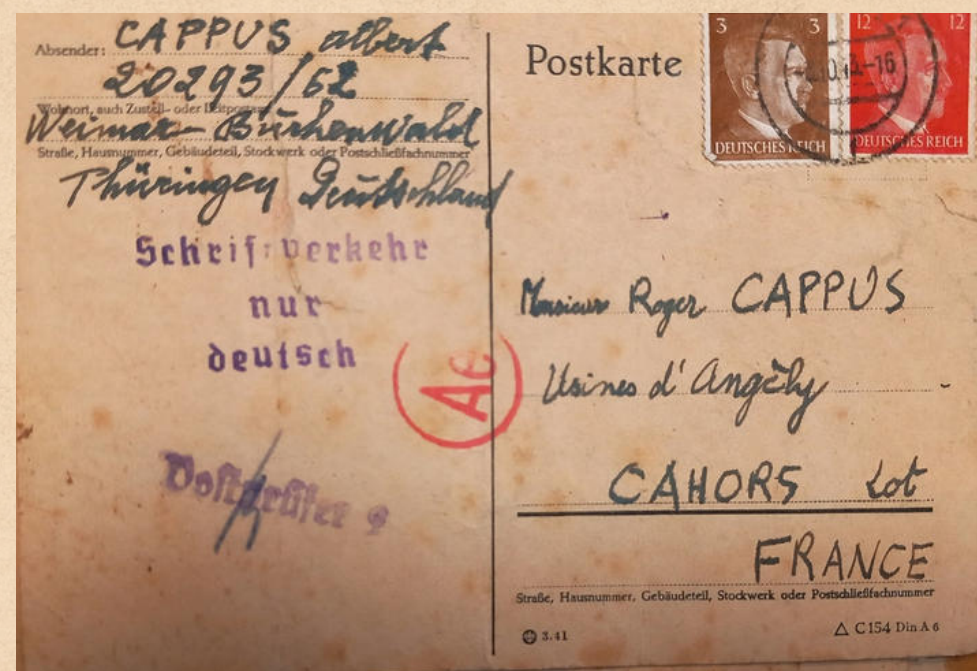 Absender: CAPPUS albert
20293/62
Wohnort, auch Zustell- oder Leitpostamt
Weimar-Buchenwald
Straße, Hausnummer, Gebäudeteil, Stockwerk oder Postschließfachnummer
Thüringen Deutschland
Schriftverkehr
nur
deutsch
Ae
Postprüfer 9
Postkarte
3 3
DEUTSCHES REICH
12 12
DEUTSCHES REICH
44-16
Monsieur Roger CAPPUS
Usines d'Angély
CAHORS Lot
FRANCE
Straße, Hausnummer, Gebäudeteil, Stockwerk oder Postschließfachnummer
3.41
C 154 Din A 6